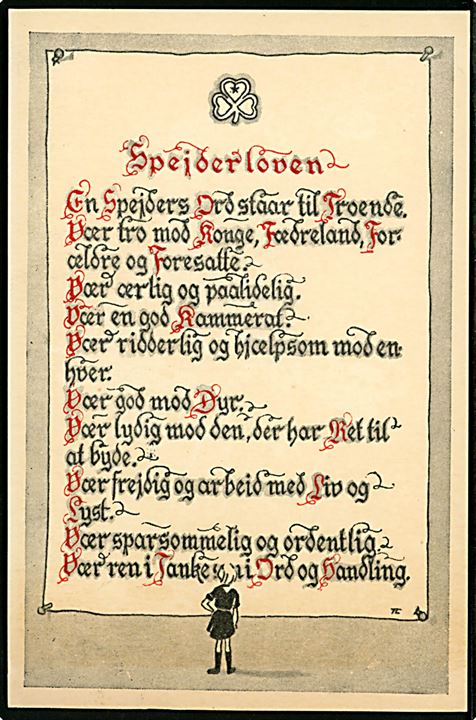 Spejderloven
En Spejders Ord staar til Troende.
Vær tro mod Konge, Fædreland, For-
ældre og Foresatte.
Vær ærlig og paalidelig.
Vær en god Kammerat.
Vær ridderlig og hjælpsom mod en-
hver.
Vær god mod Dyr.
Vær lydig mod den, der har Ret til
at byde.
Vær frejdig og arbejd med Liv og
Lyst.
Vær sparsommelig og ordentlig.
Vær ren i Tanke, i Ord og Handling.